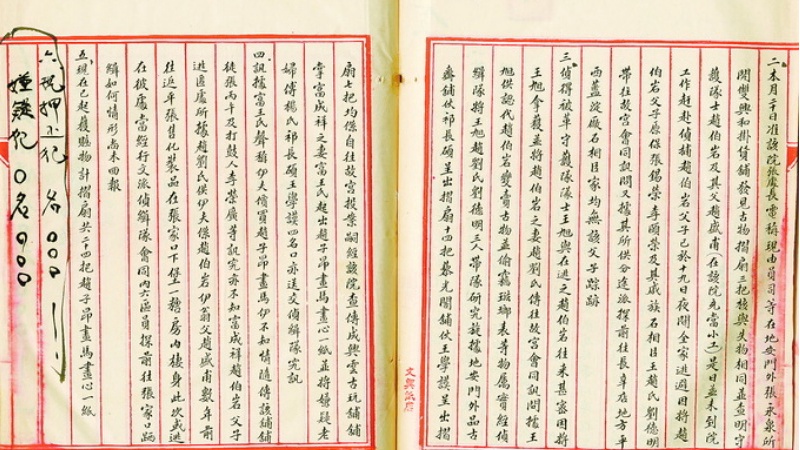 二、本月二十日准該院張處長電稱現由員司等在地安門外張永泉所
開雙興和掛貨鋪發見古物摺扇三把核與失物相同並查明守
護隊士趙伯岩及其父趙盛甫(在該院充當小工)是日並未到院
工作趕赴偵緝趙伯岩父子已於十九日夜間全家逃避因將趙
伯岩父子原保張錫榮李頤榮及其戚族石相臣王趙氏劉德明
帶往故宮會同訊問又據其所供分途派探前往長辛店地方平
西藍淀廠石相臣家均無該父子踪跡
三、偵得被革守護隊隊士王旭與在逃之趙伯岩往來甚密因將
王旭拿獲並將趙伯岩之妻趙劉氏傳往故宮會同訊問據王
旭供認代趙伯岩變賣古物並偷竊琺瑯表等物屬實經偵
緝隊將王旭趙劉氏劉德明三人帶隊研究旋據地安門外品古
齋鋪伙祁長碩呈出摺扇十四把藜光閣鋪伙王學謨呈出摺
文興紙店
扇七把均係自往故宮投案嗣經該院查傳成興雲古玩鋪鋪
掌富成祥之妻富王氏起出趙子昂畫馬畫心一紙並將嫌疑老
婦傅楊氏祁長碩王學謨四名口亦送交偵緝隊究訊
四、訊據富王氏聲稱伊夫價買趙子昂畫馬伊不知情隨傳該鋪鋪
徒張丙午及打鼓人李榮廣等訊究亦不知富成祥趙伯岩父子
逃匿處所據趙劉氏供伊夫係趙伯岩伊翁父趙盛甫數年前
往返平張售化裝品在張家口下堡土一麯房內棲身此次或逃
在彼處當經行文派偵緝隊會同內六區員探前往張家口跴
緝如何情形尚未回報
五、現在已起獲贓物計摺扇共二十四把趙子昂畫馬畫心一紙
六 現押小犯 名〇〇〇
嫌疑犯 〇名〇〇〇